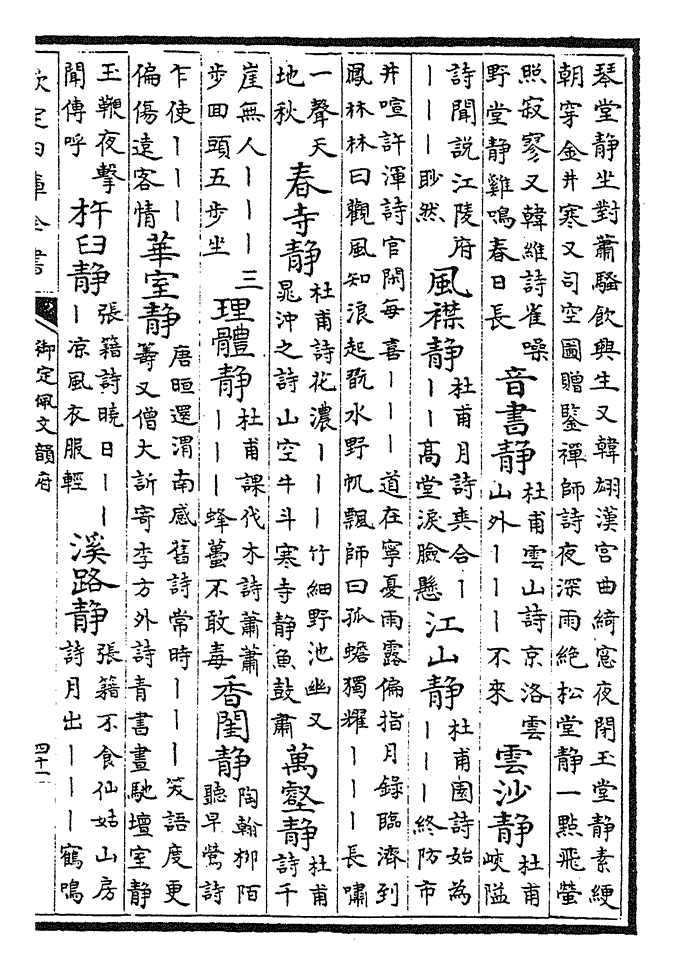 琴堂静坐對蕭騷飲興生又韓翃漢宮曲綺窓夜閉玉堂静素綆
朝穿金井寒又司空圖贈鑒禪師詩夜深雨絶松堂静一㸃飛螢
照寂寥又韓維詩雀噪
野堂静雞鳴春日長
音書静
杜甫雲山詩京洛雲
山外｜｜｜不來
雲沙静
杜甫
峽隘
詩聞說江陵府
｜｜｜眇然
風襟静
杜甫月詩爽合｜
｜｜高堂淚臉懸
江山静
杜甫園詩始為
｜｜｜終防市
井喧許渾詩官閑每喜｜｜｜道在寧憂雨露偏指月錄臨濟到
鳳林林曰觀風知浪起翫水野帆飄師曰孤蟾獨耀｜｜｜長嘯
一聲天
地秋
春寺静
杜甫詩花濃｜｜｜竹細野池幽又
晁沖之詩山空牛斗寒寺静魚鼓肅
萬壑静
杜甫
詩千
崖無人｜｜｜三
步回頭五步坐
理體静
杜甫課伐木詩蕭蕭
｜｜｜蜂蠆不敢毒
香閨静
陶翰柳陌
聽早鶯詩
乍使｜｜｜
偏傷遠客情
華室静
唐晅還渭南感舊詩常時｜｜｜笑語度更
籌又僧大訢寄李方外詩青書晝馳壇室静
玉鞭夜擊
聞傳呼
杵臼静
張籍詩曉日｜｜
｜凉風衣服輕
溪路静
張籍不食仙姑山房
詩月出｜｜｜鶴鳴
欽定四庫全書
御定佩文韻府
四十一